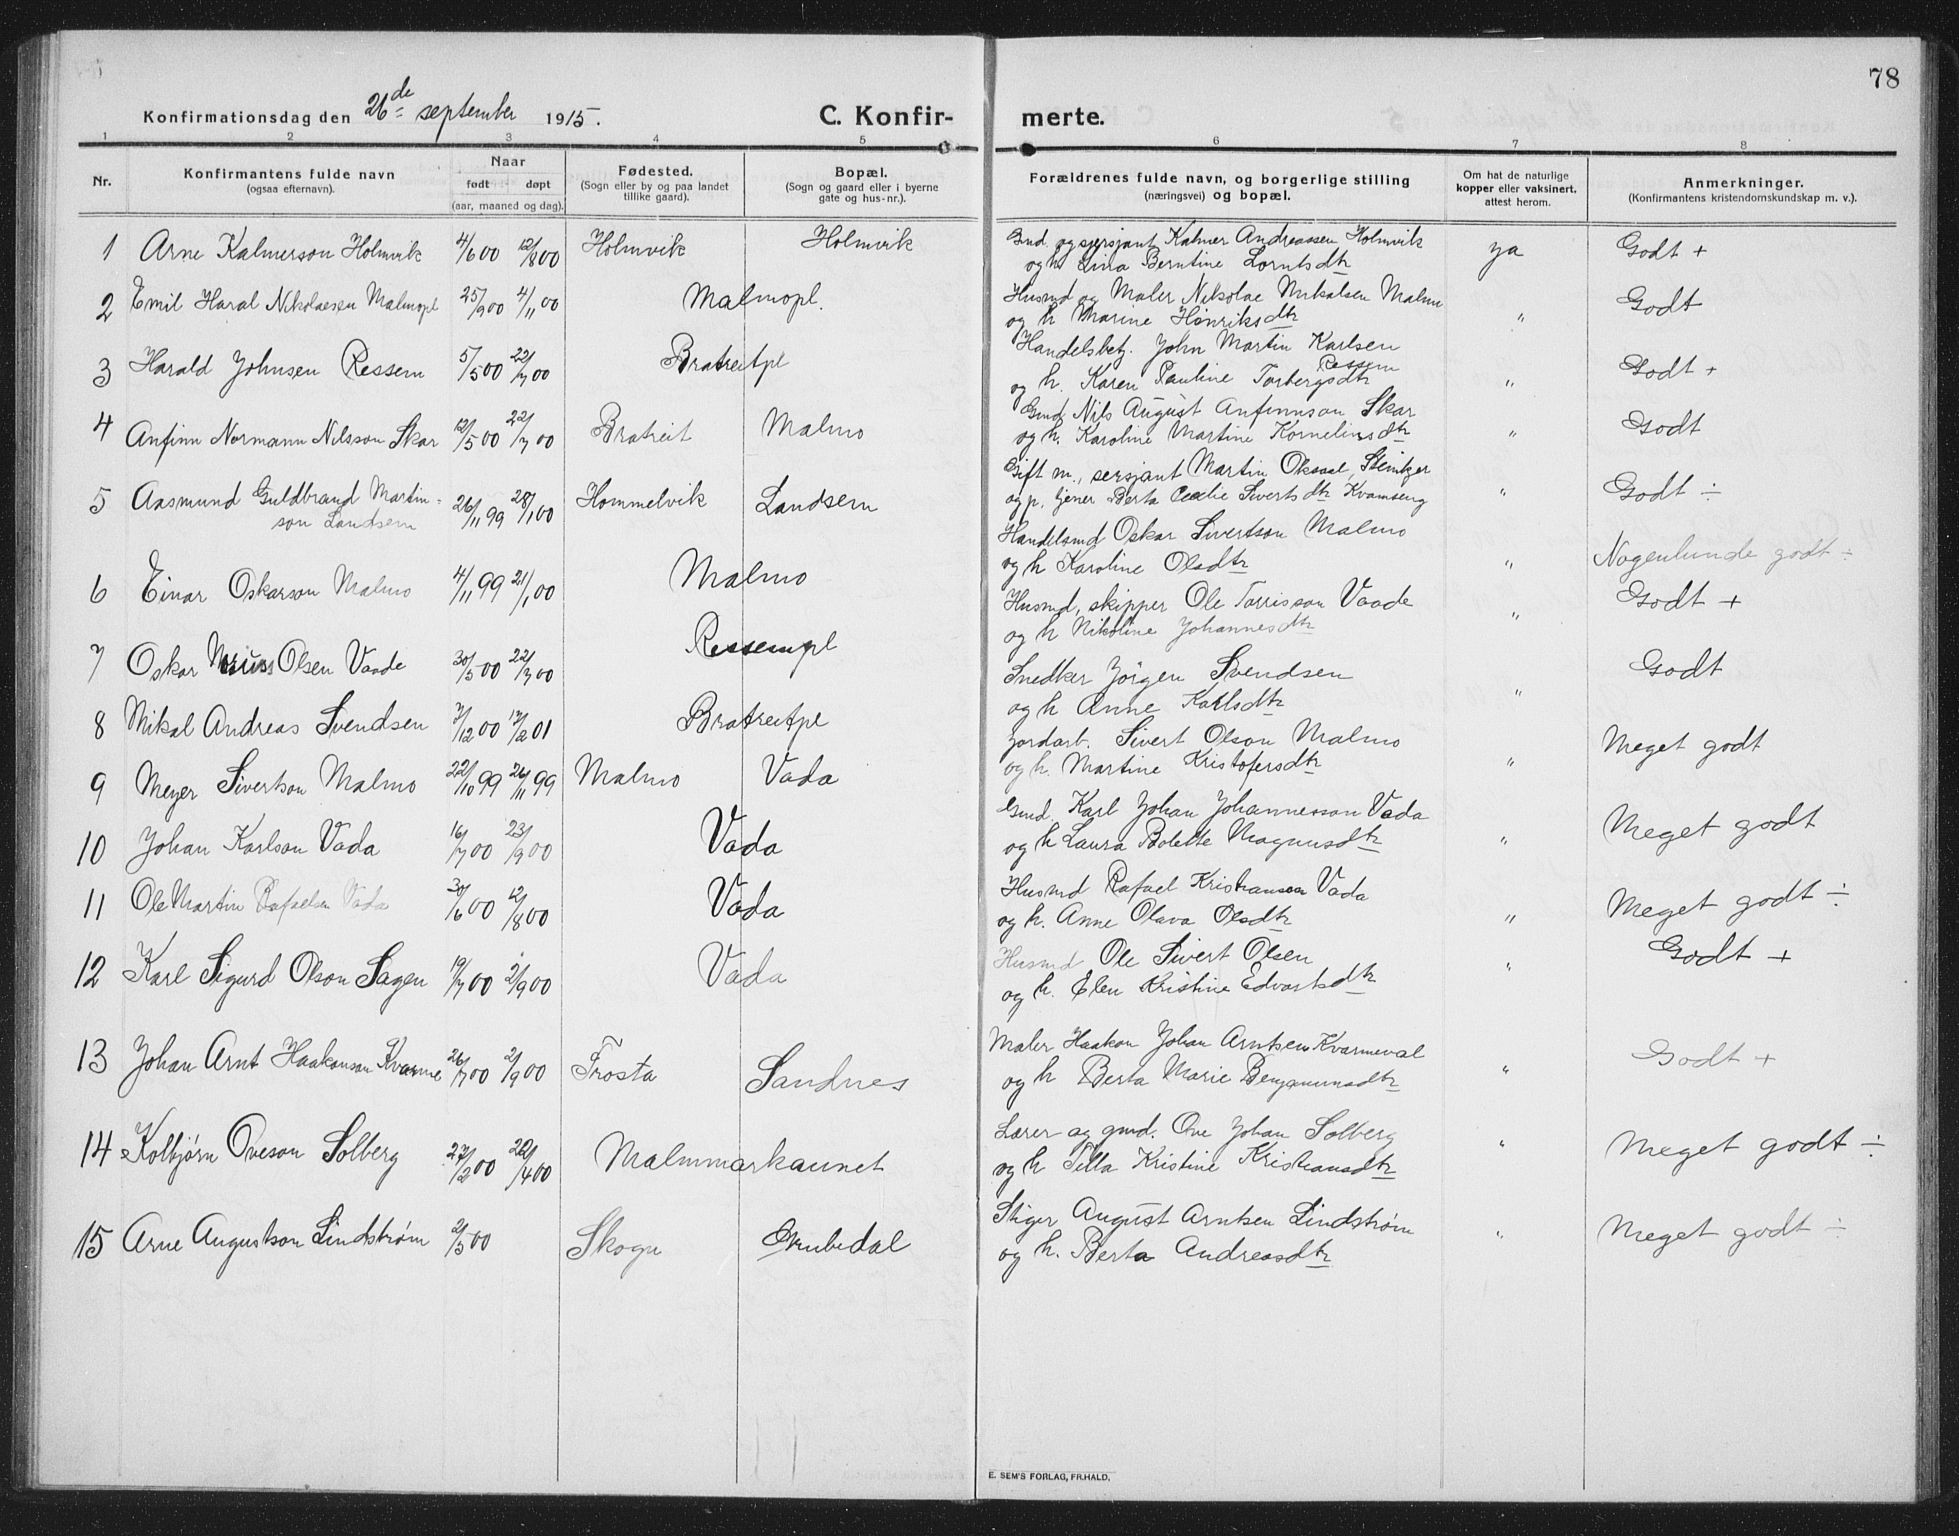 78
Konfirmationsdag den 26de september 1915. C. Konfirmerte.
1 2 3 4 5 6 7 8
Nr.
Konfirmantens fulde navn
(ogsaa efternavn).
Naar
født døpt
(aar, maaned og dag).
Fødested.
(Sogn eller by og paa landet
tillike gaard).
Bopæl.
(Sogn og gaard eller i byerne
gate og hus-nr.).
Forældrenes fulde navn, og borgerlige stilling
(næringsvei) og bopæl.
Om hat de naturlige
kopper eller vaksinert,
attest herom.
Anmerkninger.
(Konfirmantens kristendomskundskap m. v.).
1 Arne Kalmerson Holmvik 4/6 00 12/8 00 Holmvik Holmvik
Gmd. og sersjant Kalmer Andreassen Holmvik ja Godt +
og h. Lina Berntine Lorntsdtr
2 Emil Haral Nikolaesen Malmopl 25/9 00 4/11 00 Malmopl.
Husmd og Maler Nikolae Mikalsen Malmo " Godt
og h Marine Henriksdtr
3 Harald Johnsen Ressem 5/5 00 22/7 00 Bratreitpl
Handelsbetj. John Martin Karlsen
Ressem
og h. Karen Pauline Torbergsdtr " Godt +
4 Anfinn Normann Nilsson Skar 12/5 00 22/7 00 Bratreit Malmo
Gmd. Nils August Anfinnson Skar Godt
og h. Karoline Martine Korneliusdtr "
5 Aasmund Guldbrand Martin-
son Landsem 26/11 99 28/1 00 Hommelvik Landsem
Gift m., sersjant Martin Oksaal, Stenkjer
og p. tjener Berta Cecilie Sivertsdtr Kvamseng " Godt ÷
6 Einar Oskarson Malmo 4/11 99 21/1 00 Malmo
Handelsmd Oskar Sivertson Malmo
og h Karoline Olsdtr " Nogenlunde godt ÷
7 Oskar Olsen Vaade 30/5 00 22/7 00 Ressempl
Husmd, skipper Ole Torrisson Vaade Godt +
og h Nikoline Johannesdtr "
8 Mikal Andreas Svendsen 7/12 00 17/2 01 Bratreitpl
Snedker Jörgen Svendsen Godt
og h Anne Karlsdtr "
9 Meyer Sivertson Malmo 22/10 99 26/11 99 Malmo Vada
Jordarb. Sivert Olson Malmo Meget godt
og h. Martine Kristofersdtr "
10 Johan Karlson Vada 16/7 00 23/9 00 Vada
Gmd. Karl Johan Johannesson Vada
og h Laura Bolette Magnusdtr " Meget godt
11 Ole Martin Rafaelsen Vada 30/6 00 12/8 00 Vada
Husmd Rafael Kristiansen Vada
og h. Anne Olava Olsdtr " Meget godt ÷
12 Karl Sigurd Olson Sagen 19/7 00 2/9 00 Vada
Husmd Ole Sivert Olsen Godt +
og h. Elen Kristine Edvartsdtr "
13 Johan Arnt Haakonson Kvarme 26/7 00 2/9 00 Frosta Sandnes
Maler Haakon Johan Arntsen Kvarmeval
og h Berta Marie Benjaminsdtr " Godt +
14 Kolbjørn Oveson Solberg 27/2 00 22/4 00 Malmmarkaunet
Lærer og gmd. Ove Johan Solberg
og h Tella Kristine Kristiansdtr " Meget godt ÷
15 Arne Augustson Lindstrøm 2/5 00 Skogn Grubedal
Stiger August Arntsen Lindstrøm
og h. Berta Andreasdtr " Meget godt ÷
E. SEM'S FORLAG, FR.HALD.